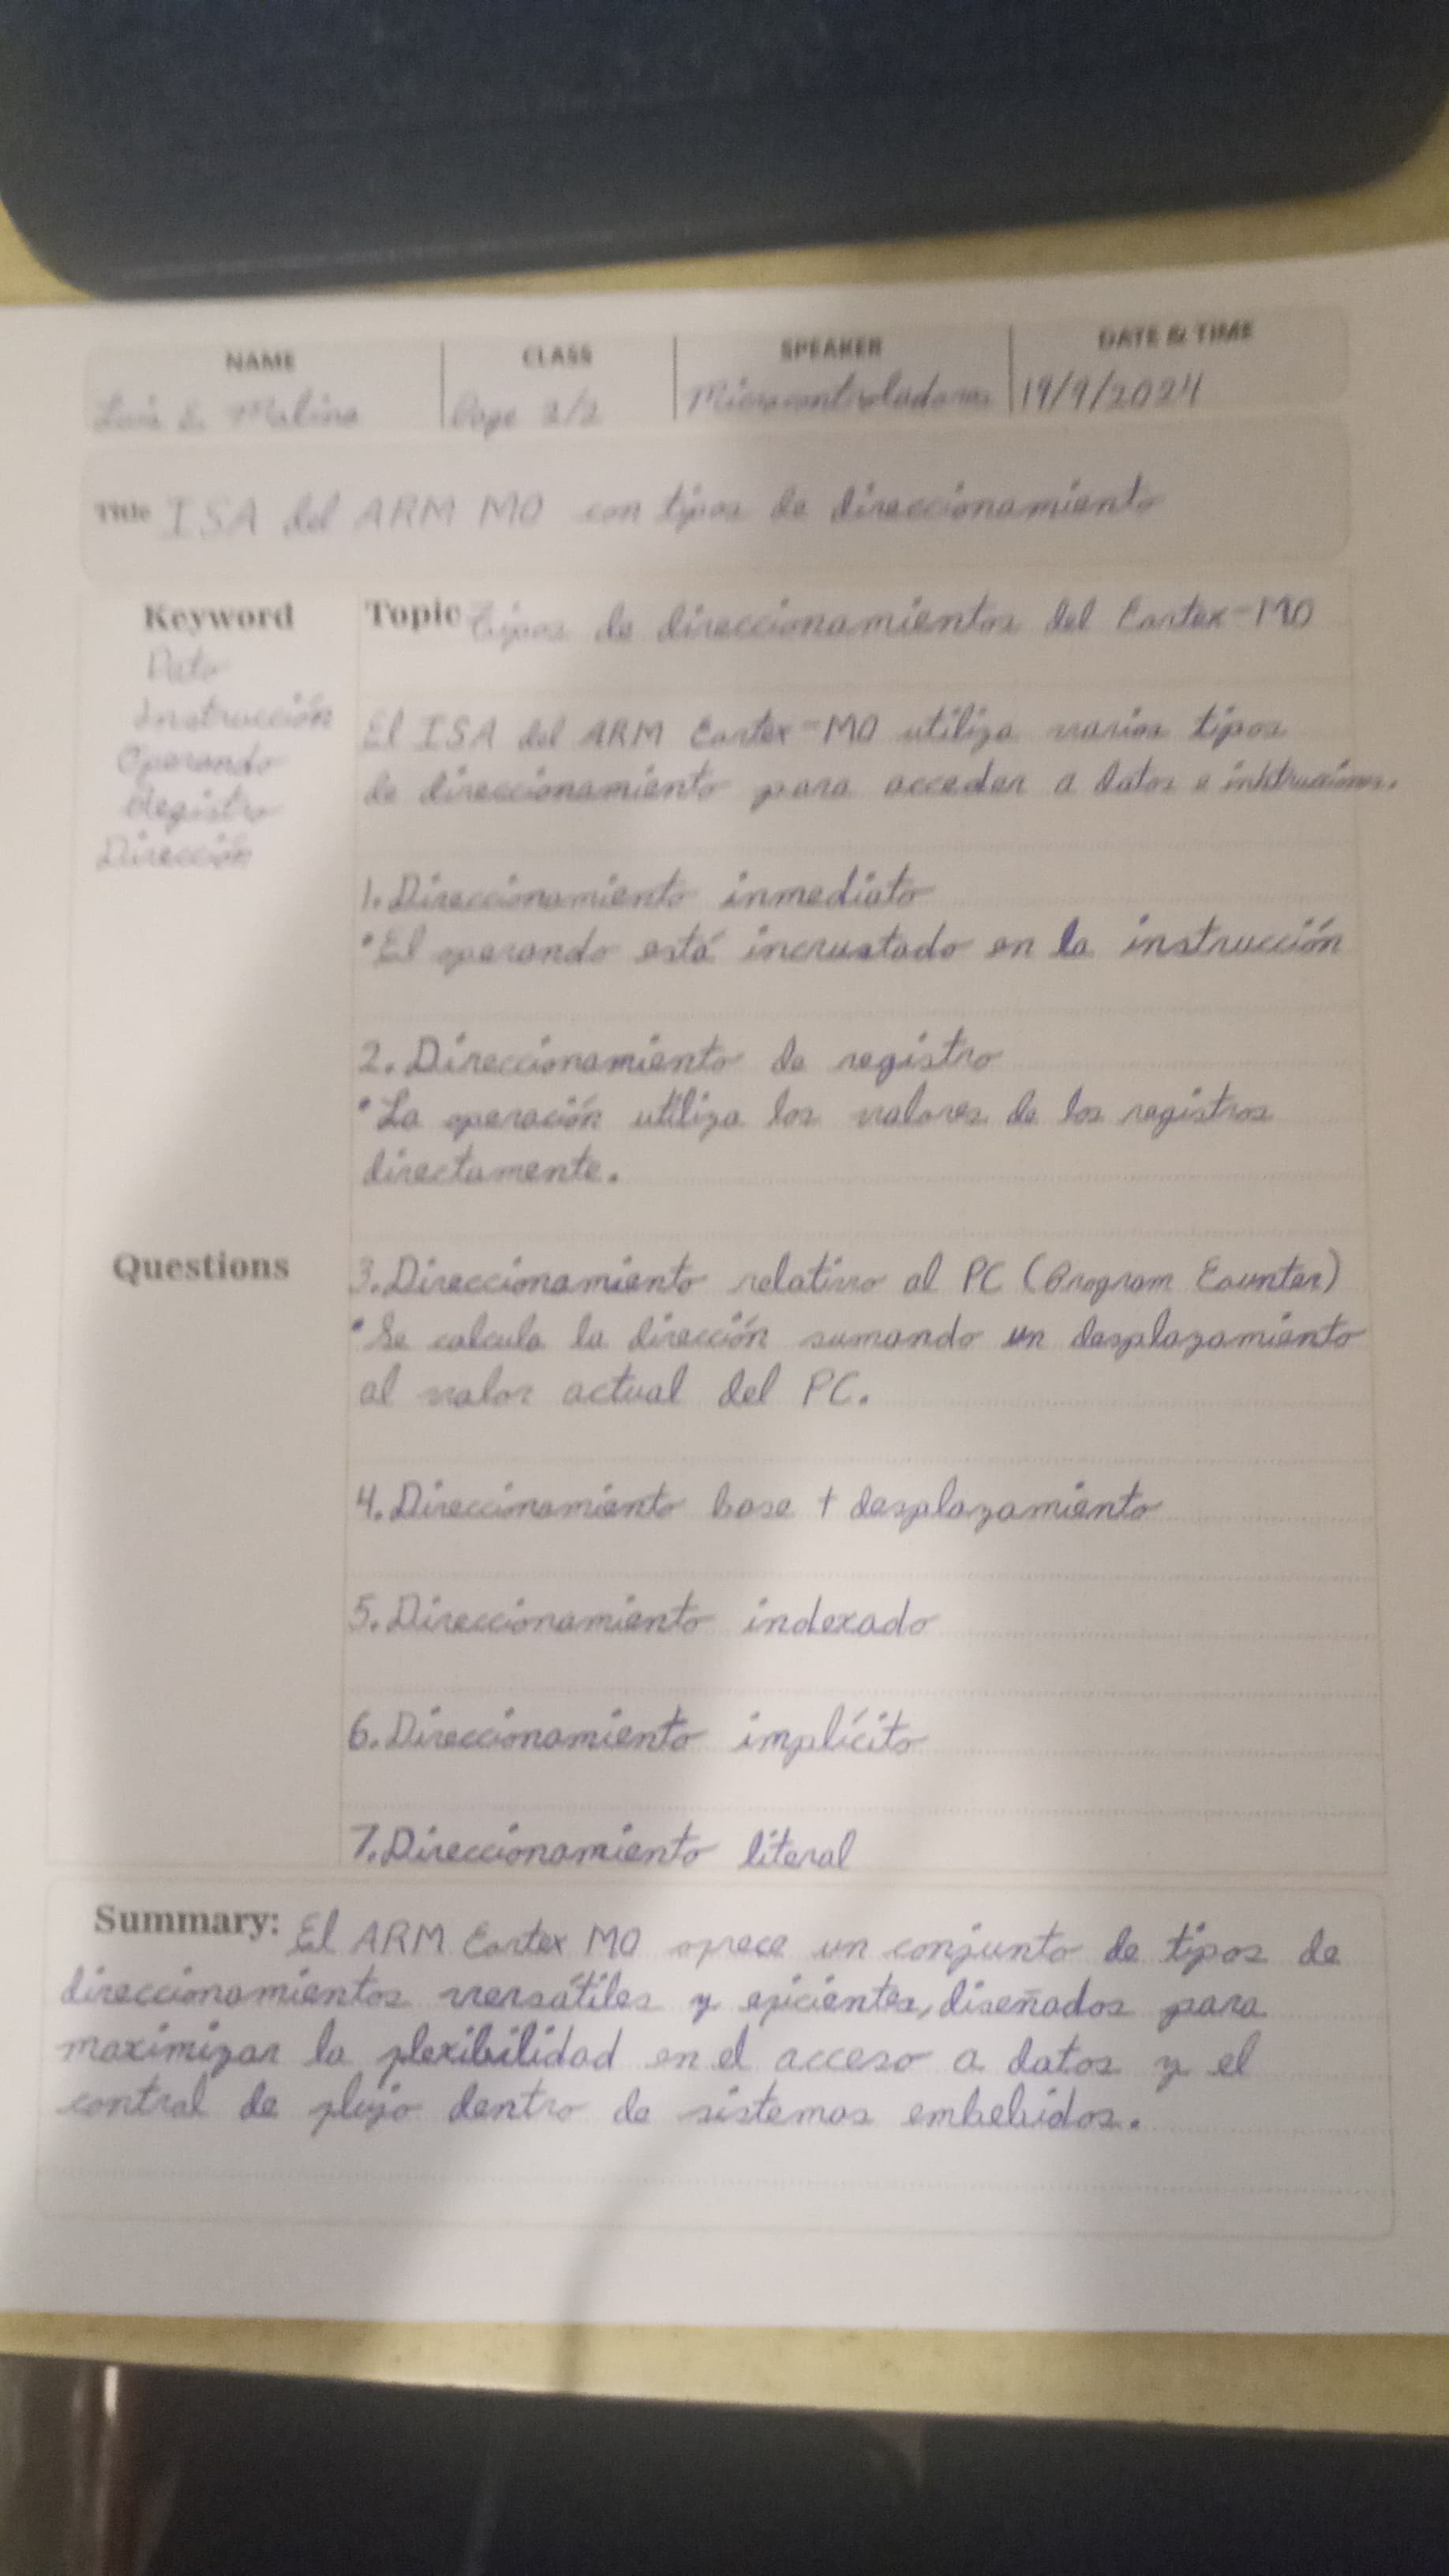 NAME CLASS SPEAKER DATE & TIME
Luis E. Molina Page 2/2 Microcontroladores 19/9/2024
Title ISA del ARM M0 con tipos de direccionamiento
Keyword
Dato
Instrucción
Operando
Registro
Dirección
Questions
Topic Tipos de direccionamientos del Cortex-M0
El ISA del ARM Cortex-M0 utiliza varios tipos
de direccionamiento para acceder a datos e instrucciones.
1. Direccionamiento inmediato
• El operando está incrustado en la instrucción
2. Direccionamiento de registro
• La operación utiliza los valores de los registros
directamente.
3. Direccionamiento relativo al PC (Program Counter)
• Se calcula la dirección sumando un desplazamiento
al valor actual del PC.
4. Direccionamiento base + desplazamiento
5. Direccionamiento indexado
6. Direccionamiento implícito
7. Direccionamiento literal
Summary: El ARM Cortex M0 ofrece un conjunto de tipos de
direccionamientos versátiles y eficientes, diseñados para
maximizar la flexibilidad en el acceso a datos y el
control de flujo dentro de sistemas embebidos.